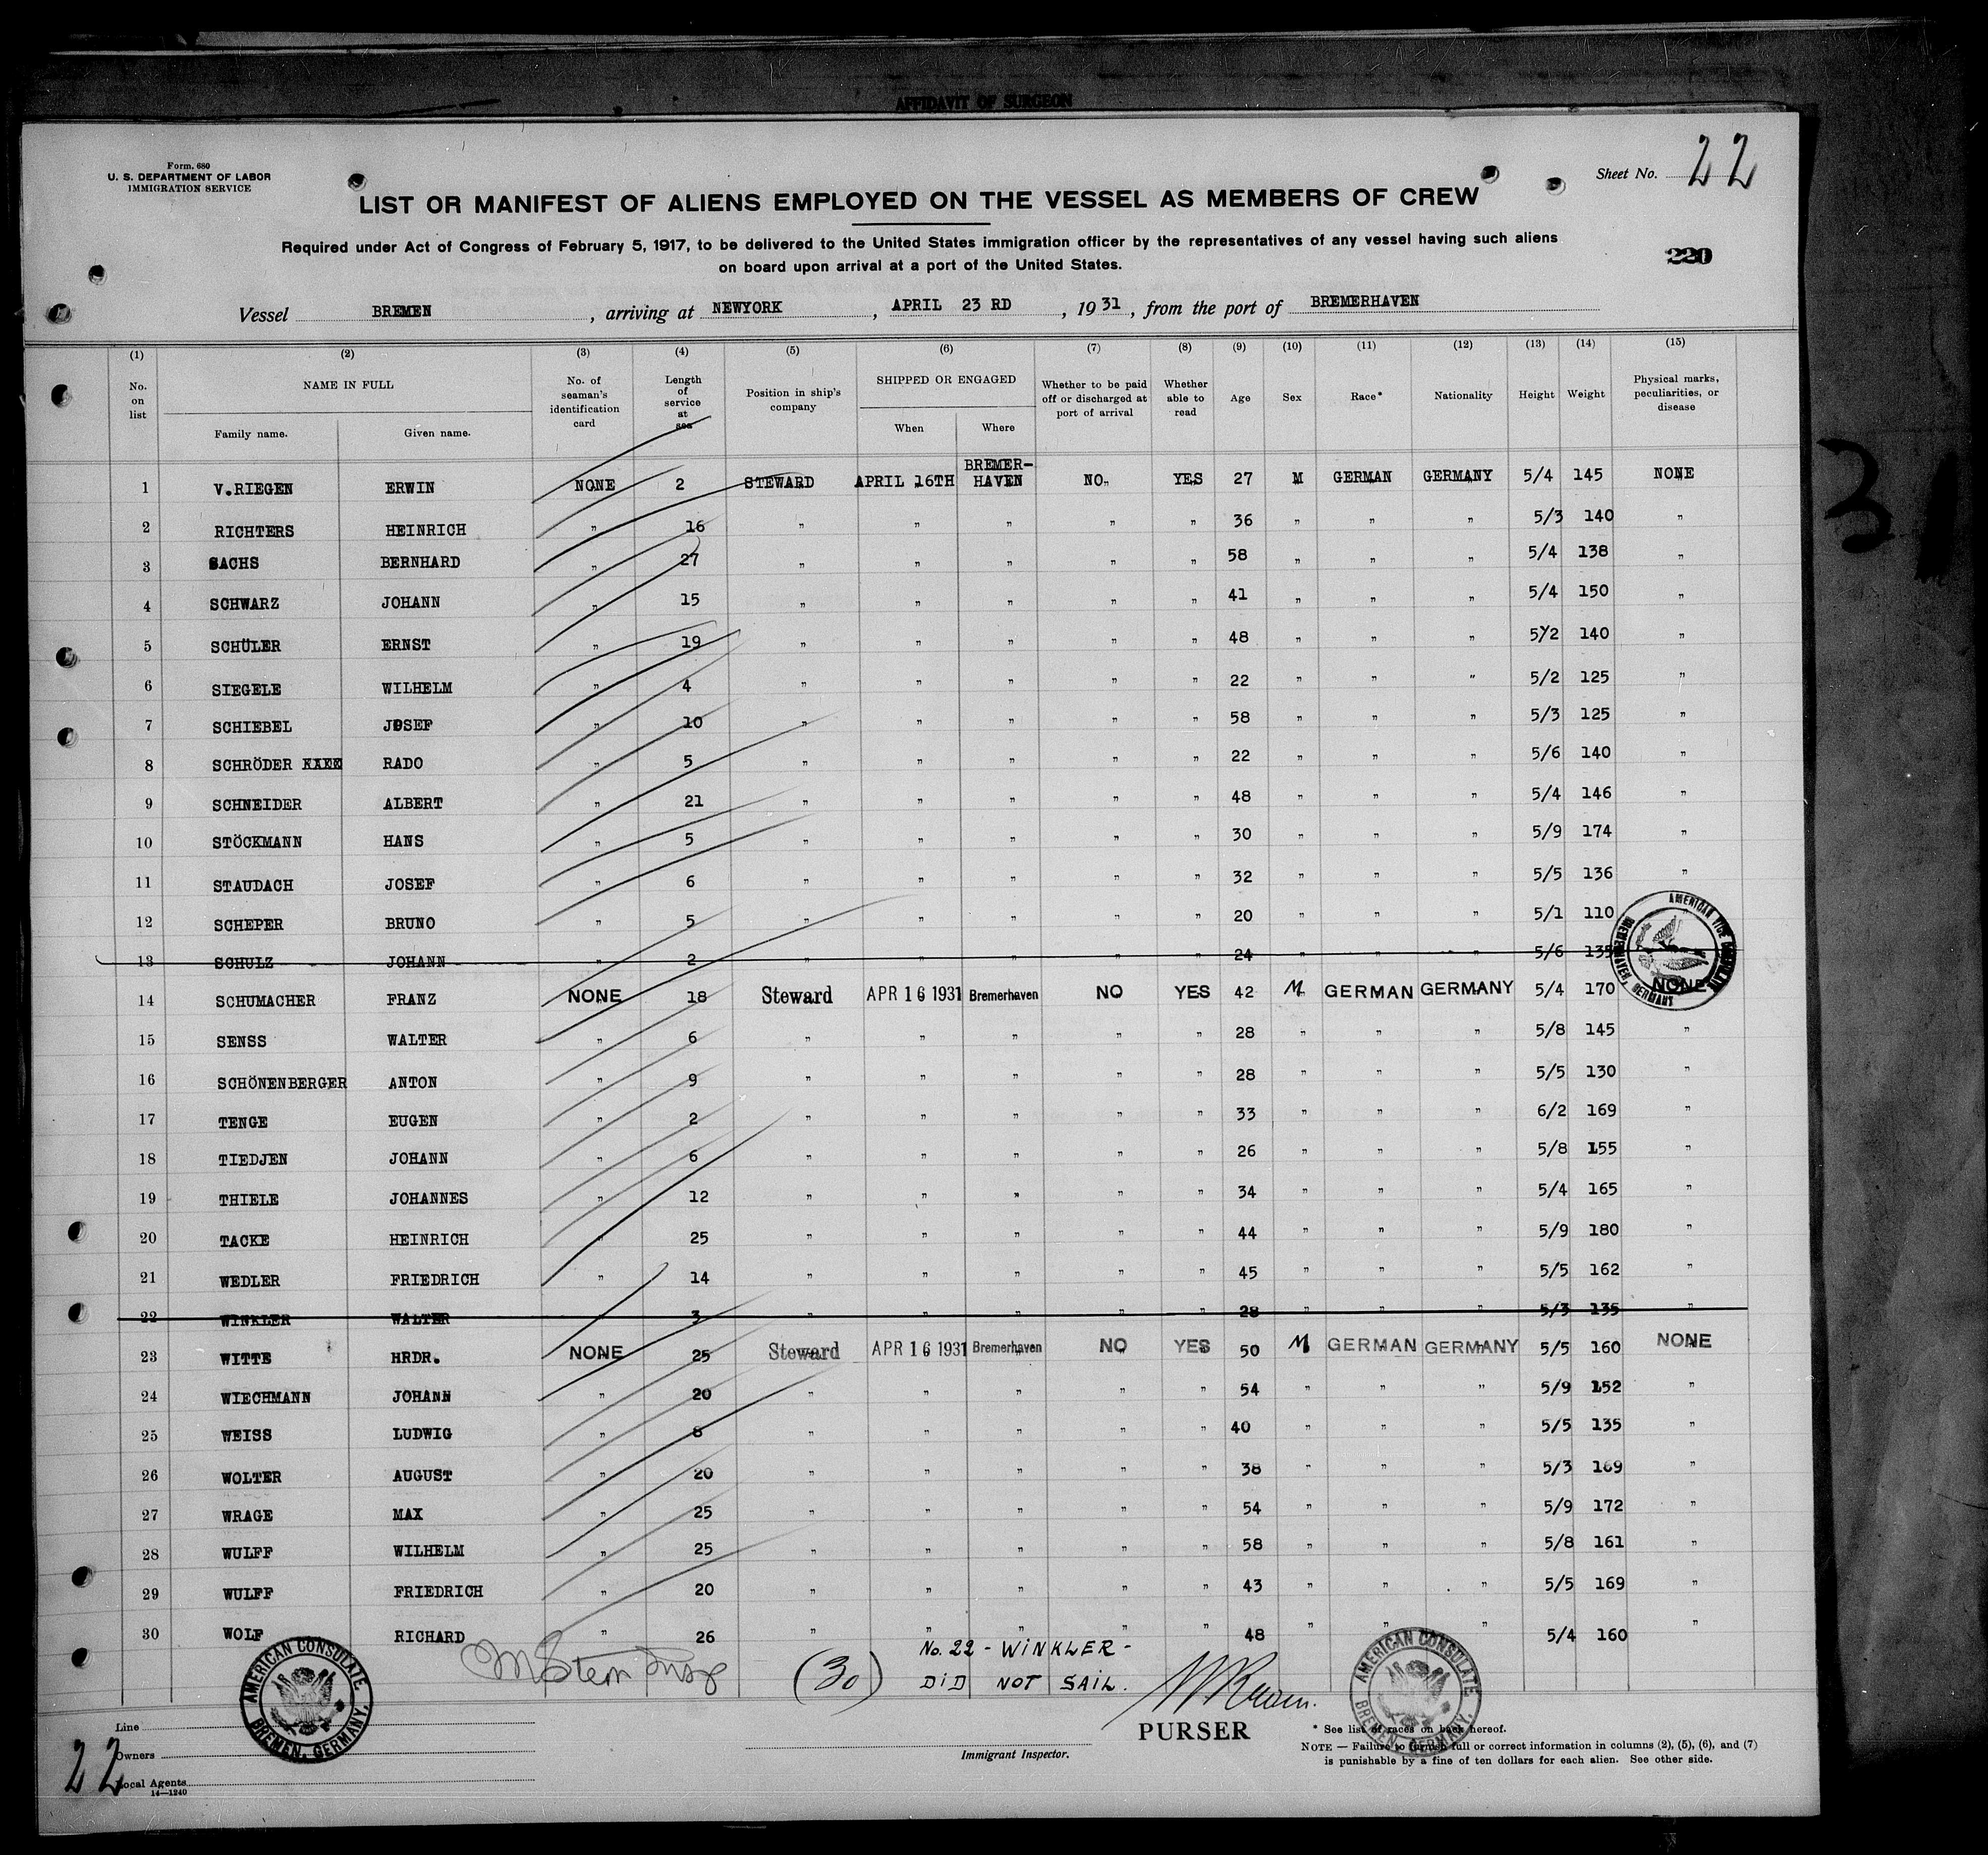 AFFIDAVIT OF SURGEON
Form. 680
U. S. DEPARTMENT OF LABOR
IMMIGRATION SERVICE
Sheet No. 22
LIST OR MANIFEST OF ALIENS EMPLOYED ON THE VESSEL AS MEMBERS OF CREW
Required under Act of Congress of February 5, 1917, to be delivered to the United States immigration officer by the representatives of any vessel having such aliens
on board upon arrival at a port of the United States.
220
Vessel BREMEN , arriving at NEWYORK , APRIL 23 RD , 19 31 , from the port of BREMERHAVEN
(1) (2) (3) (4) (5) (6) (7) (8) (9) (10) (11) (12) (13) (14) (15)
No. on list
NAME IN FULL
Family name. Given name.
No. of seaman's identification card
Length of service at sea
Position in ship's company
SHIPPED OR ENGAGED
When Where
Whether to be paid off or discharged at port of arrival
Whether able to read
Age
Sex
Race*
Nationality
Height
Weight
Physical marks, peculiarities, or disease
1 V.RIEGEN ERWIN NONE 2 STEWARD APRIL 16TH BREMER-HAVEN NO. YES 27 M GERMAN GERMANY 5/4 145 NONE
2 RICHTERS HEINRICH " 16 " " " " " 36 " " " 5/3 140 "
3 SACHS BERNHARD " 27 " " " " " 58 " " " 5/4 138 "
4 SCHWARZ JOHANN " 15 " " " " " 41 " " " 5/4 150 "
5 SCHÜLER ERNST " 19 " " " " " 48 " " " 5/2 140 "
6 SIEGELE WILHELM " 4 " " " " " 22 " " " 5/2 125 "
7 SCHIEBEL JOSEF " 10 " " " " " 58 " " " 5/3 125 "
8 SCHRÖDER RADO " 5 " " " " " 22 " " " 5/6 140 "
9 SCHNEIDER ALBERT " 21 " " " " " 48 " " " 5/4 146 "
10 STÖCKMANN HANS " 5 " " " " " 30 " " " 5/9 174 "
11 STAUDACH JOSEF " 6 " " " " " 32 " " " 5/5 136 "
12 SCHEPER BRUNO " 5 " " " " " 20 " " " 5/1 110
13 SCHULZ JOHANN " 2 " " " " " 24 " " " 5/6 135
AMERICAN VICE CONSULATE BREMERHAVEN, GERMANY
14 SCHUMACHER FRANZ NONE 18 Steward APR 16 1931 Bremerhaven NO YES 42 M GERMAN GERMANY 5/4 170 NONE
15 SENSS WALTER " 6 " " " " " 28 " " " 5/8 145 "
16 SCHÖNENBERGER ANTON " 9 " " " " " 28 " " " 5/5 130 "
17 TENGE EUGEN " 2 " " " " " 33 " " " 6/2 169 "
18 TIEDJEN JOHANN " 6 " " " " " 26 " " " 5/8 155 "
19 THIELE JOHANNES " 12 " " " " " 34 " " " 5/4 165 "
20 TACKE HEINRICH " 25 " " " " " 44 " " " 5/9 180 "
21 WEDLER FRIEDRICH " 14 " " " " " 45 " " " 5/5 162 "
22 WINKLER WALTER " 3 " " " " " 28 " " " 5/3 135 "
23 WITTE HRDR. NONE 25 Steward APR 16 1931 Bremerhaven NO YES 50 M GERMAN GERMANY 5/5 160 NONE
24 WIECHMANN JOHANN " 20 " " " " " 54 " " " 5/9 152 "
25 WEISS LUDWIG " 8 " " " " " 40 " " " 5/5 135 "
26 WOLTER AUGUST " 20 " " " " " 38 " " " 5/3 169 "
27 WRAGE MAX " 25 " " " " " 54 " " " 5/9 172 "
28 WULFF WILHELM " 25 " " " " " 58 " " " 5/8 161 "
29 WULFF FRIEDRICH " 20 " " " " " 43 " " " 5/5 169 "
30 WOLF RICHARD " 26 " " " " " 48 " " " 5/4 160 "
AMERICAN CONSULATE BREMEN, GERMANY.
(30)
No. 22 - WINKLER -
DID NOT SAIL.
PURSER
AMERICAN CONSULATE BREMEN, GERMANY.
Line
Owners
Local Agents
14—1240
22
Immigrant Inspector.
* See list of races on back hereof.
NOTE — Failure to furnish full or correct information in columns (2), (5), (6), and (7)
is punishable by a fine of ten dollars for each alien. See other side.
31